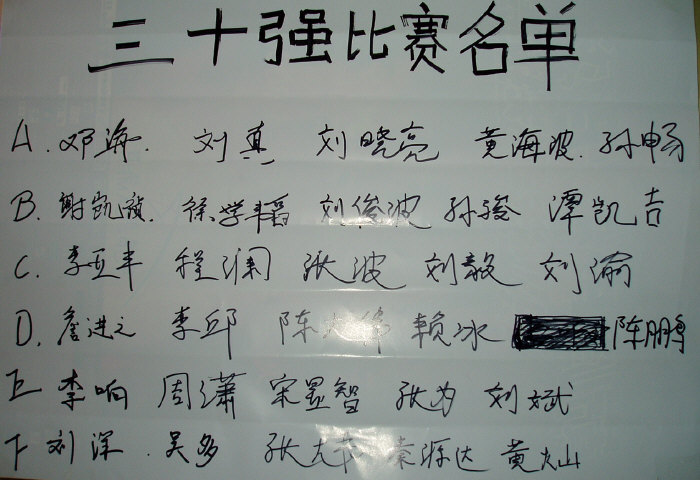 三十强比赛名单
A. 邓海. 刘真 刘晓亮 黄海波. 孙畅
B. 谢凯 徐学韬 刘俊波 孙骏 潭凯吉
C. 李亚丰 程澜 张波 刘毅 刘渝
D. 詹进之 李邱 陈 赖冰 陈鹏
E 李响 周潇 宋显智 张为 刘斌
F 刘深. 吴多 张大节 秦源达 黄大山